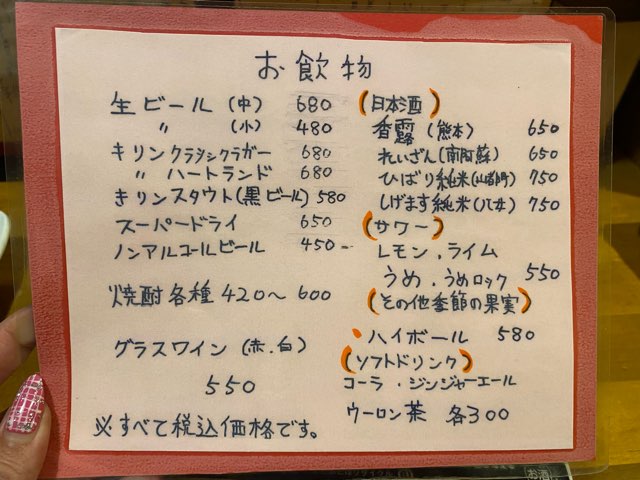 お飲物
生ビール(中) 680
〃 (小) 480
キリンクラシックラガー 680
〃 ハートランド 680
キリンスタウト(黒ビール) 580
スーパードライ 650
ノンアルコールビール 450-
焼酎各種 420〜600
グラスワイン(赤.白)
550
※すべて税込価格です。
(日本酒)
香露(熊本) 650
れいざん(南阿蘇) 650
ひばり純米(山鹿) 750
しげます純米(八女) 750
(サワー)
レモン.ライム
うめ.うめロック 550
(その他季節の果実)
ハイボール 580
(ソフトドリンク)
コーラ・ジンジャーエール
ウーロン茶 各300